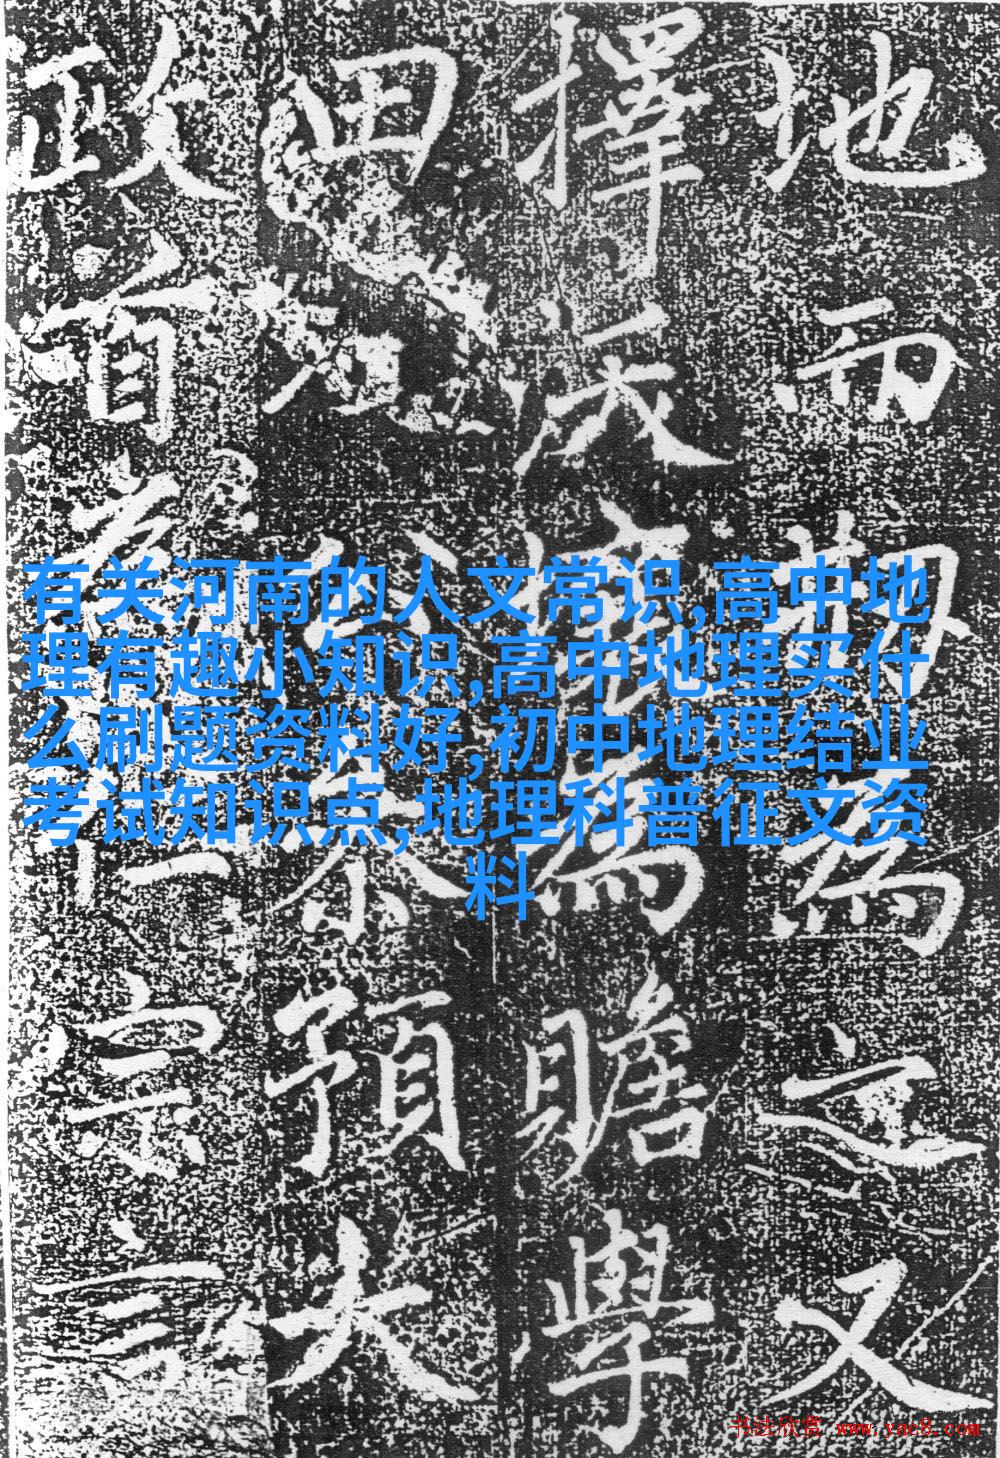 地而為又
擇為瞻學
田預大
政首宗言
有关河南的人文常识,高中地
理有趣小知识,高中地理买什
么刷题资料好,初中地理结业
考试知识点,地理科普征文资
料
书法欣赏 www.yac8.com